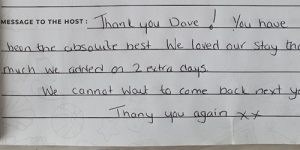 MESSAGE TO THE HOST: Thank you Dave! You have
been the absolute best We loved our stay
much we added on 2 extra days.
We cannot wait to come back next
Thany you again xx